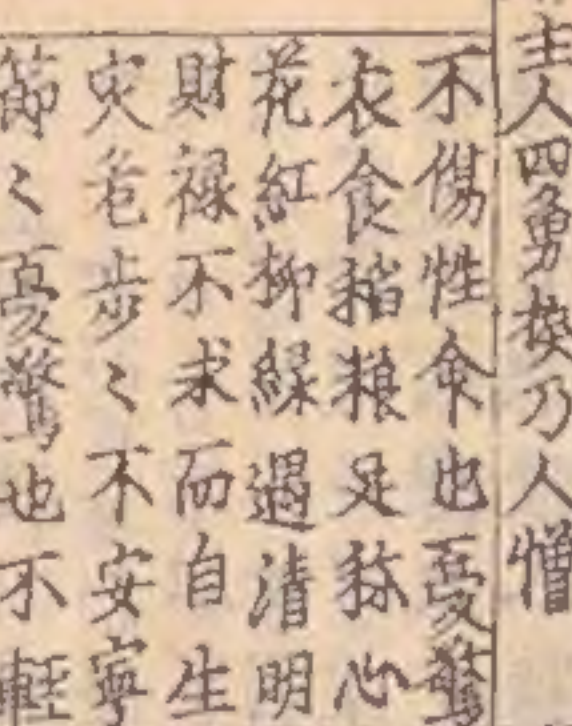 主人四勇揆乃人憎
不傷性命也憂驚
衣食稻粮足稱心
花紅柳綠遇清明
財禄不求而自生
灾危步〻不安寧
節〻憂驚也不輕